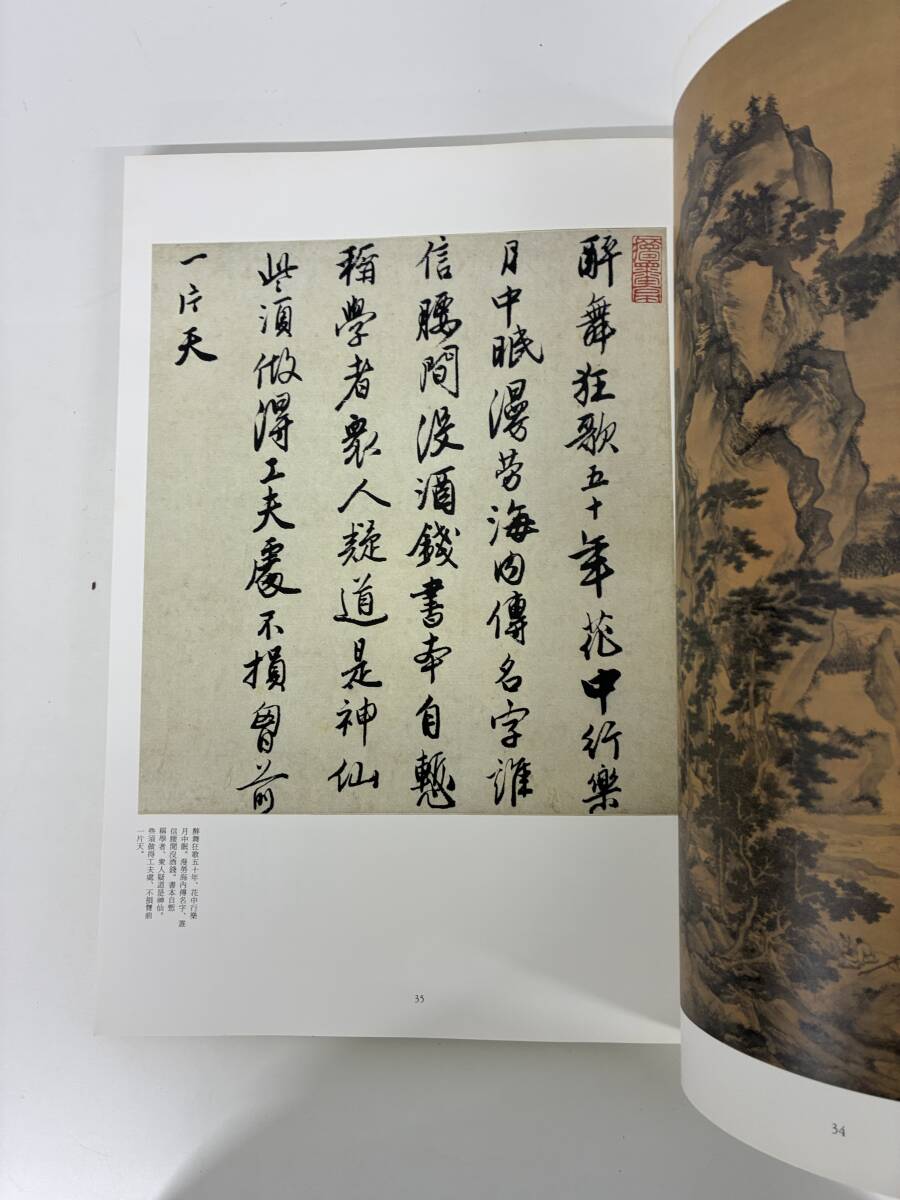 醉舞狂歌五十年花中行樂
月中眠漫勞海內傳名字誰
信腰間沒酒錢書本自慙
稱學者衆人疑道是神仙
些須做得工夫處不損胷前
一片天
醉舞狂歌五十年、花中行樂
月中眠。漫勞海內傳名字、誰
信腰間沒酒錢。書本自慙
稱學者、衆人疑道是神仙。
些須做得工夫處、不損胷前
一片天。
35
34